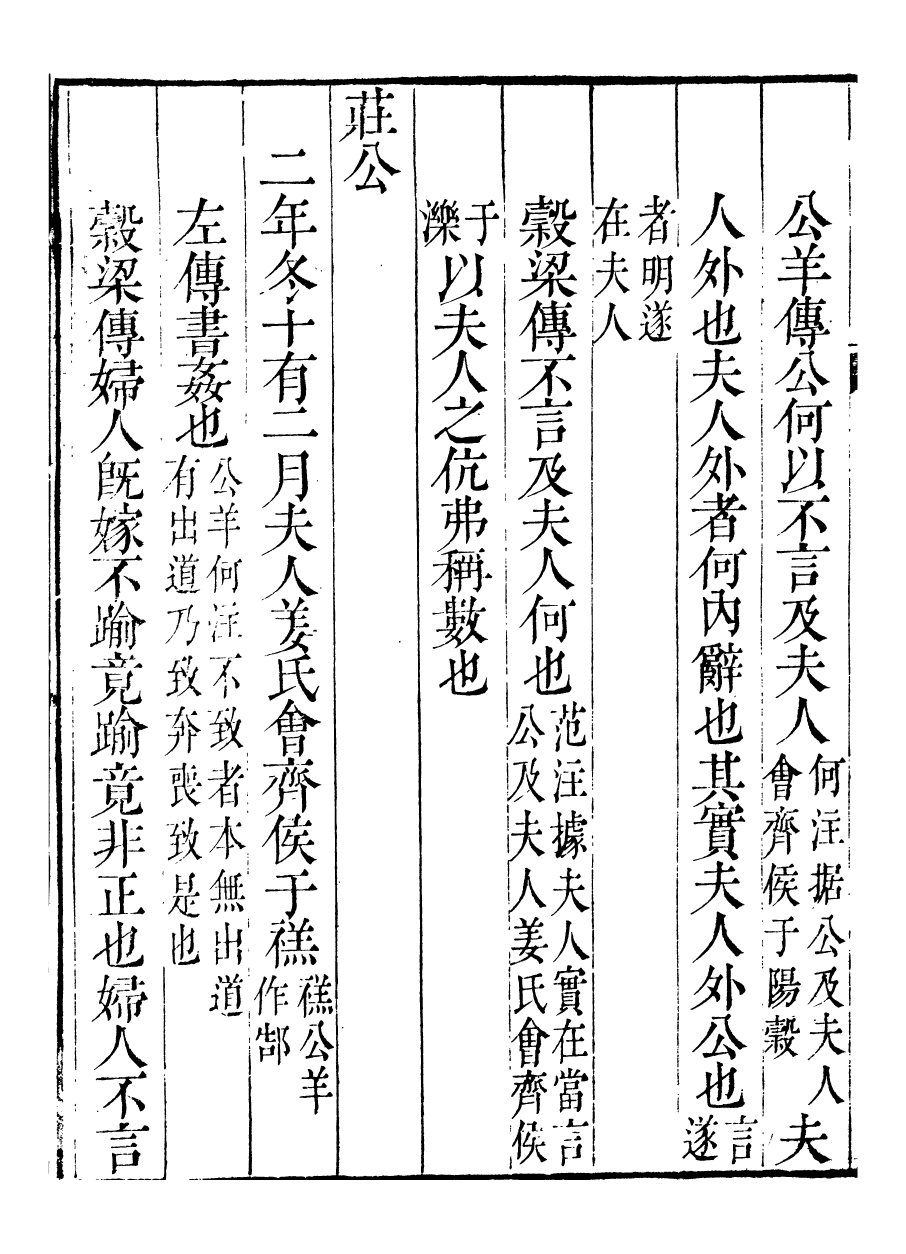 公羊傳公何以不言及夫人何注据公及夫人會齊侯于陽穀夫
人外也夫人外者何內辭也其實夫人外公也言遂
者明遂在夫人
穀梁傳不言及夫人何也范注據夫人實在當言公及夫人姜氏會齊侯
于濼以夫人之伉弗稱數也
莊公
二年冬十有二月夫人姜氏會齊侯于禚禚公羊作郜
左傳書姦也公羊何注不致者本無出道有出道乃致奔喪致是也
穀梁傳婦人旣嫁不踰竟踰竟非正也婦人不言